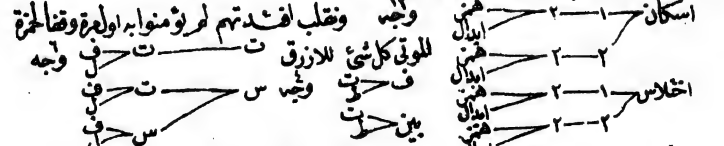 اسكان ١ ٢ همز ابدال واجه ونقلب افئدتهم لم يؤمنوا به اول مرة وقفا لحمزة
٢ ٢ همز ابدال الموتى كل شئ للازرق ت ت ف واجه
اختلاس ١ ٢ همز ابدال ف ت واجه س ت ف
٢ ٢ همز ابدال بين ت س ف